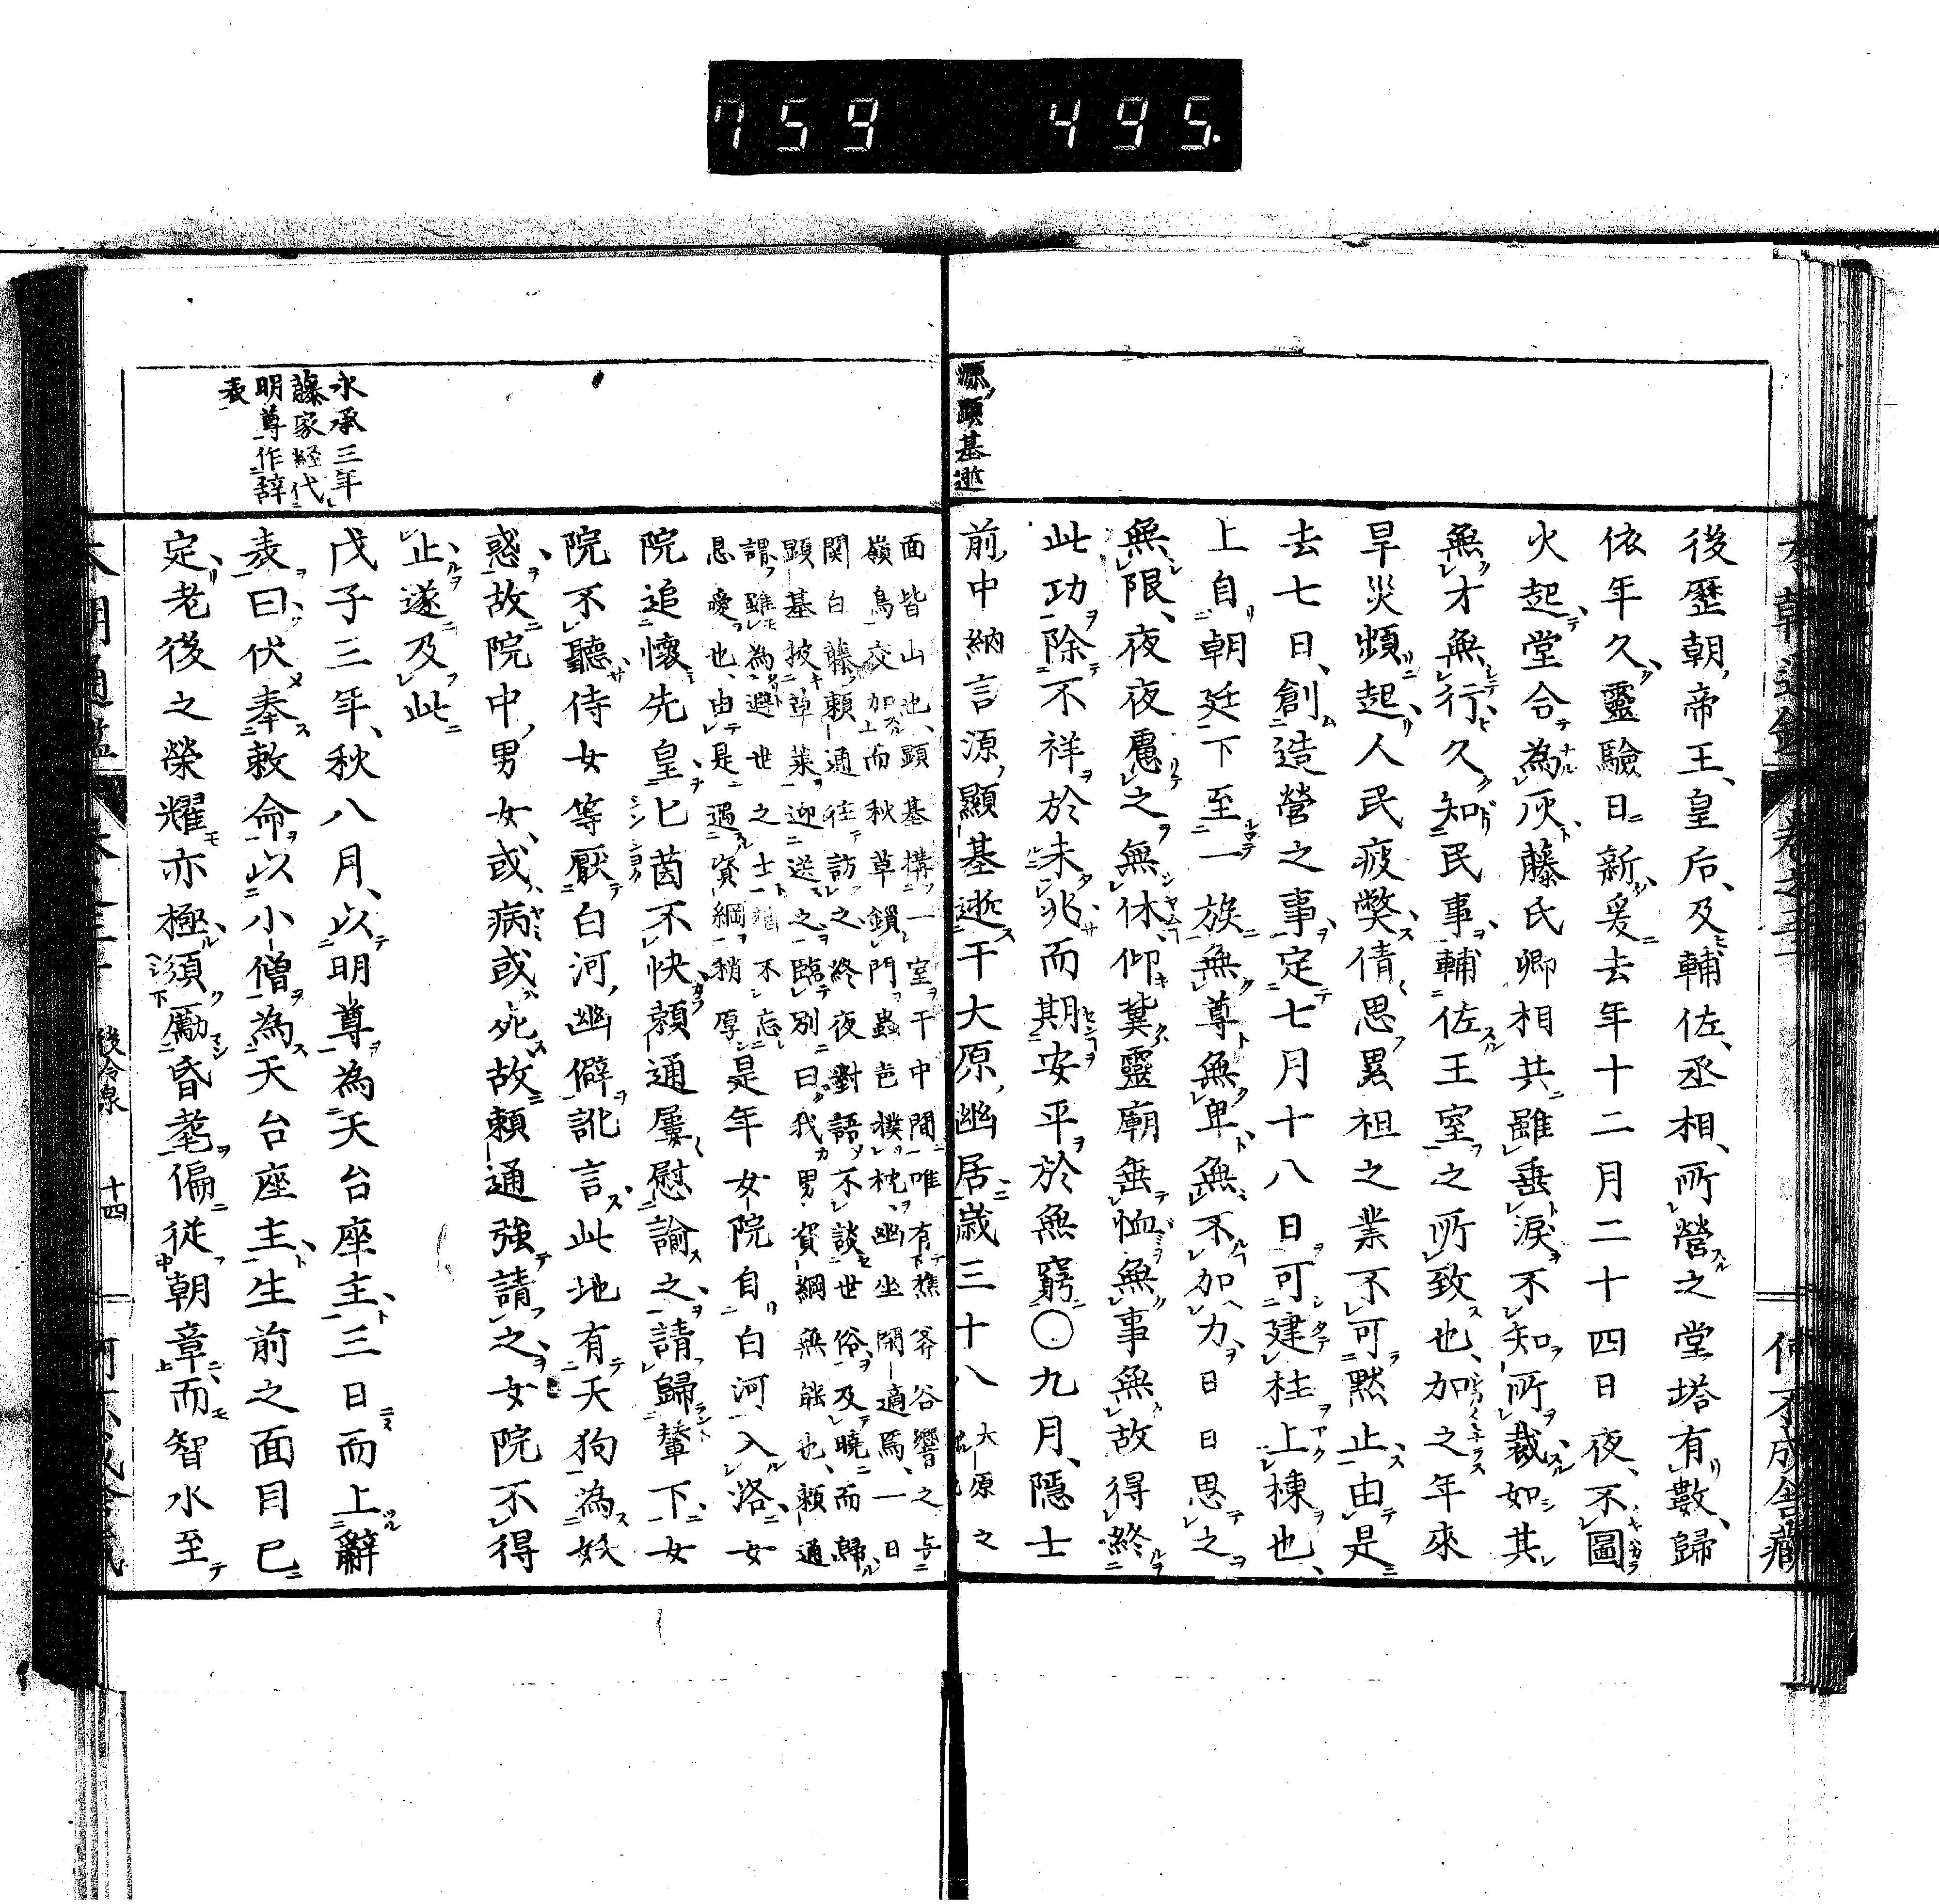 759 495.
後歷朝帝王、皇后、及輔佐、丞相、所營之堂塔有數、歸
依年久、靈驗日新、爰去年十二月二十四日夜、不圖
火起、堂合為灰、藤氏卿相共雖垂淚、不知所裁、如其
無才無行、久知民事、輔佐王室之所致也、加之年來
旱災頻起、人民疲弊、倩思累祖之業、不可黙止、由是
去七日、創造營之事、定七月十八日、可建柱上棟也、
上自朝廷、下至一族、無尊無卑、無不加力、日日思之
無限、夜夜慮之無休、仰冀靈廟垂恤、無事無故得終
此功、除不祥於未兆、而期安平於無窮○九月、隱士
前中納言源顯基逝于大原幽居、歲三十八 大原之
源顯基逝
面皆山也、顯基構一室于中間、唯有樵斧谷響之與
嶺鳥交加、而秋草鎖門、蟲邑撲枕、幽坐閑適焉、一日
関白藤賴通往訪之、終夜對語、不談世俗、及曉而歸、
顯基披草萊迎送之、臨別曰、我男資綱無能也、賴通
謂雖為避世之士、不忘
恩愛也、由是遇資綱稍厚 是年女院自白河入洛、女
院追懷先皇匕茵不快、賴通屢慰諭之、請歸輦下、女
院不聽、侍女等厭白河幽僻、訛言此地有天狗為妖
惑、故院中男女、或病或死、故賴通強請之、女院不得
止、遂及此
戊子三年、秋八月、以明尊為天台座主、三日而上辭
表曰、伏奉敕命、以小僧為天台座主、生前之面目已
定、老後之榮耀亦極、須勵昏耄、偏從朝章、而智水至
永承三年
藤家経代
明尊作辞
表
後冷泉 十四
何不成舎藏